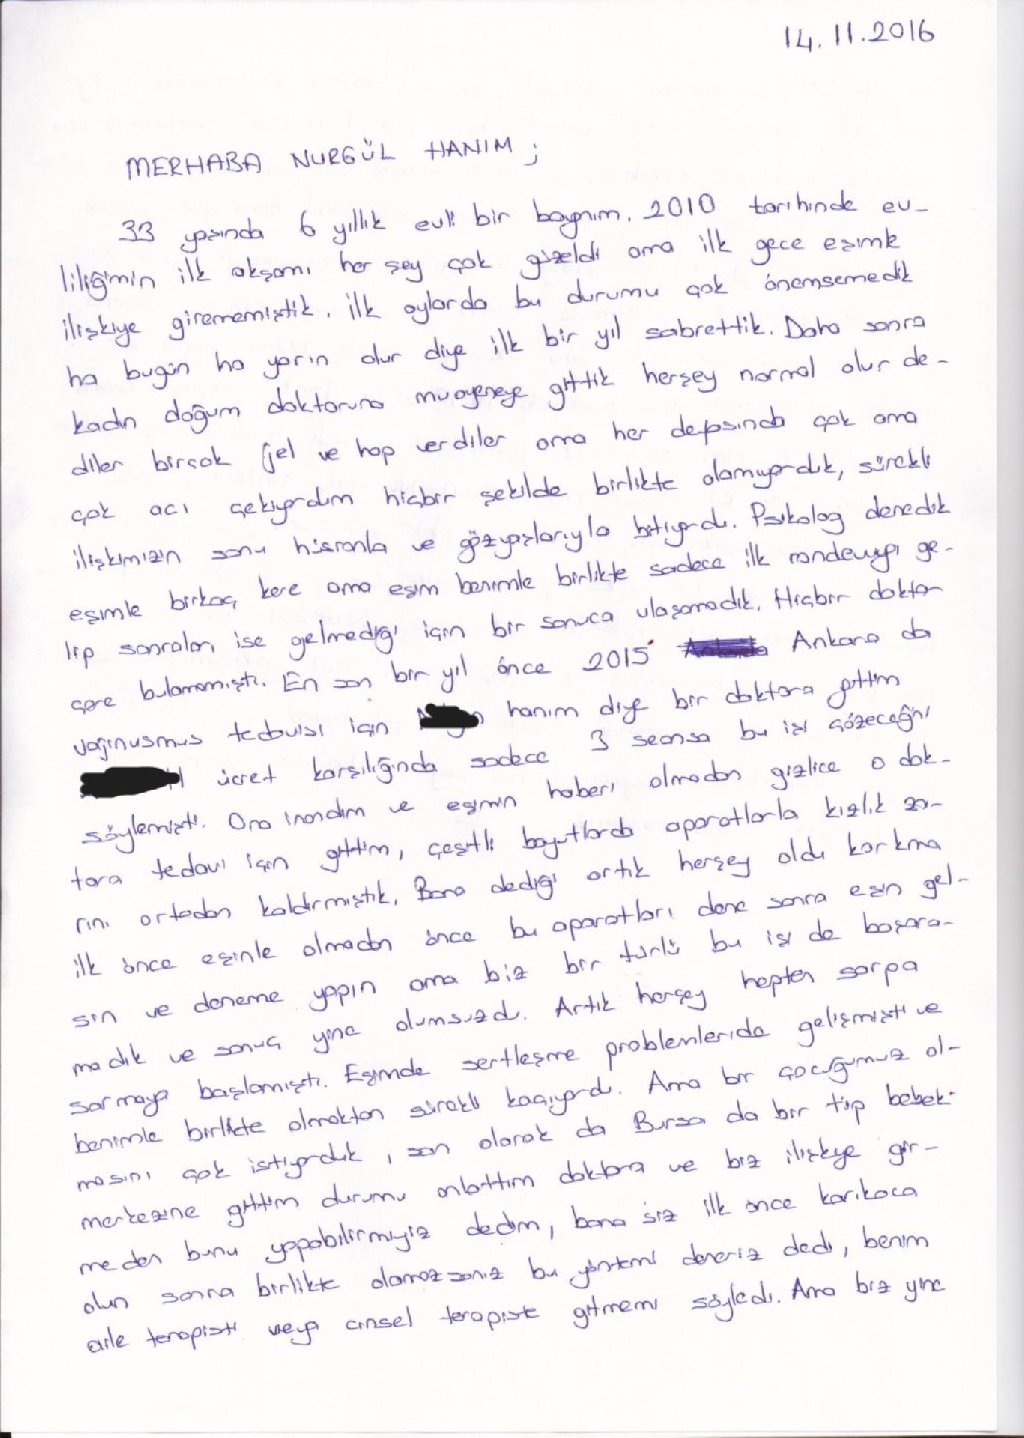 14.11.2016
MERHABA NURGÜL HANIM ;
33 yaşında 6 yıllık evli bir bayanım. 2010 tarihinde ev-
liliğimin ilk akşamı her şey çok güzeldi ama ilk gece eşimle
ilişkiye girememiştik. İlk aylarda bu durumu çok önemsemedik
ha bugün ha yarın olur diye ilk bir yıl sabrettik. Daha sonra
kadın doğum doktoruna muayeneye gittik herşey normal olur de-
diler birçok jel ve hap verdiler ama her defasında çok ama
çok acı çekiyordum hiçbir şekilde birlikte olamıyorduk, sürekli
ilişkimizin sonu hüsranla ve gözyaşlarıyla bitiyordu. Psikolog denedik
eşimle birkaç kere ama eşim benimle birlikte sadece ilk randevuya ge-
lip sonraları ise gelmediği için bir sonuca ulaşamadık. Hiçbir doktor
çare bulamamıştı. En son bir yıl önce 2015 Ankara da
vajinusmus tedavisi için hanım diye bir doktora gittim
ücret karşılığında sadece 3 seansa bu işi çözeceğini
söylemişti. Ona inandım ve eşimin haberi olmadan gizlice o dok-
tora tedavi için gittim, çeşitli boyutlarda aparatlarla kızlık za-
rını ortadan kaldırmıştık. Bana dediği artık herşey oldu korkma
ilk önce eşinle olmadan önce bu aparatları dene sonra eşin gel-
sin ve deneme yapın ama biz bir türlü bu işi de başara-
madık ve sonuç yine olumsuzdu. Artık herşey hepten sarpa
sarmaya başlamıştı. Eşimde sertleşme problemleride gelişmişti ve
benimle birlikte olmaktan sürekli kaçıyordu. Ama bir çocuğumuz ol-
masını çok istiyorduk, son olarak da Bursa da bir tüp bebek
merkezine gittim durumu anlattım doktora ve biz ilişkiye gir-
meden bunu yapabilirmiyiz dedim, bana siz ilk önce karıkoca
olun sonra birlikte olamazsanız bu yöntemi deneriz dedi, benim
aile terapisti veya cinsel terapiste gitmemi söyledi. Ama biz yine